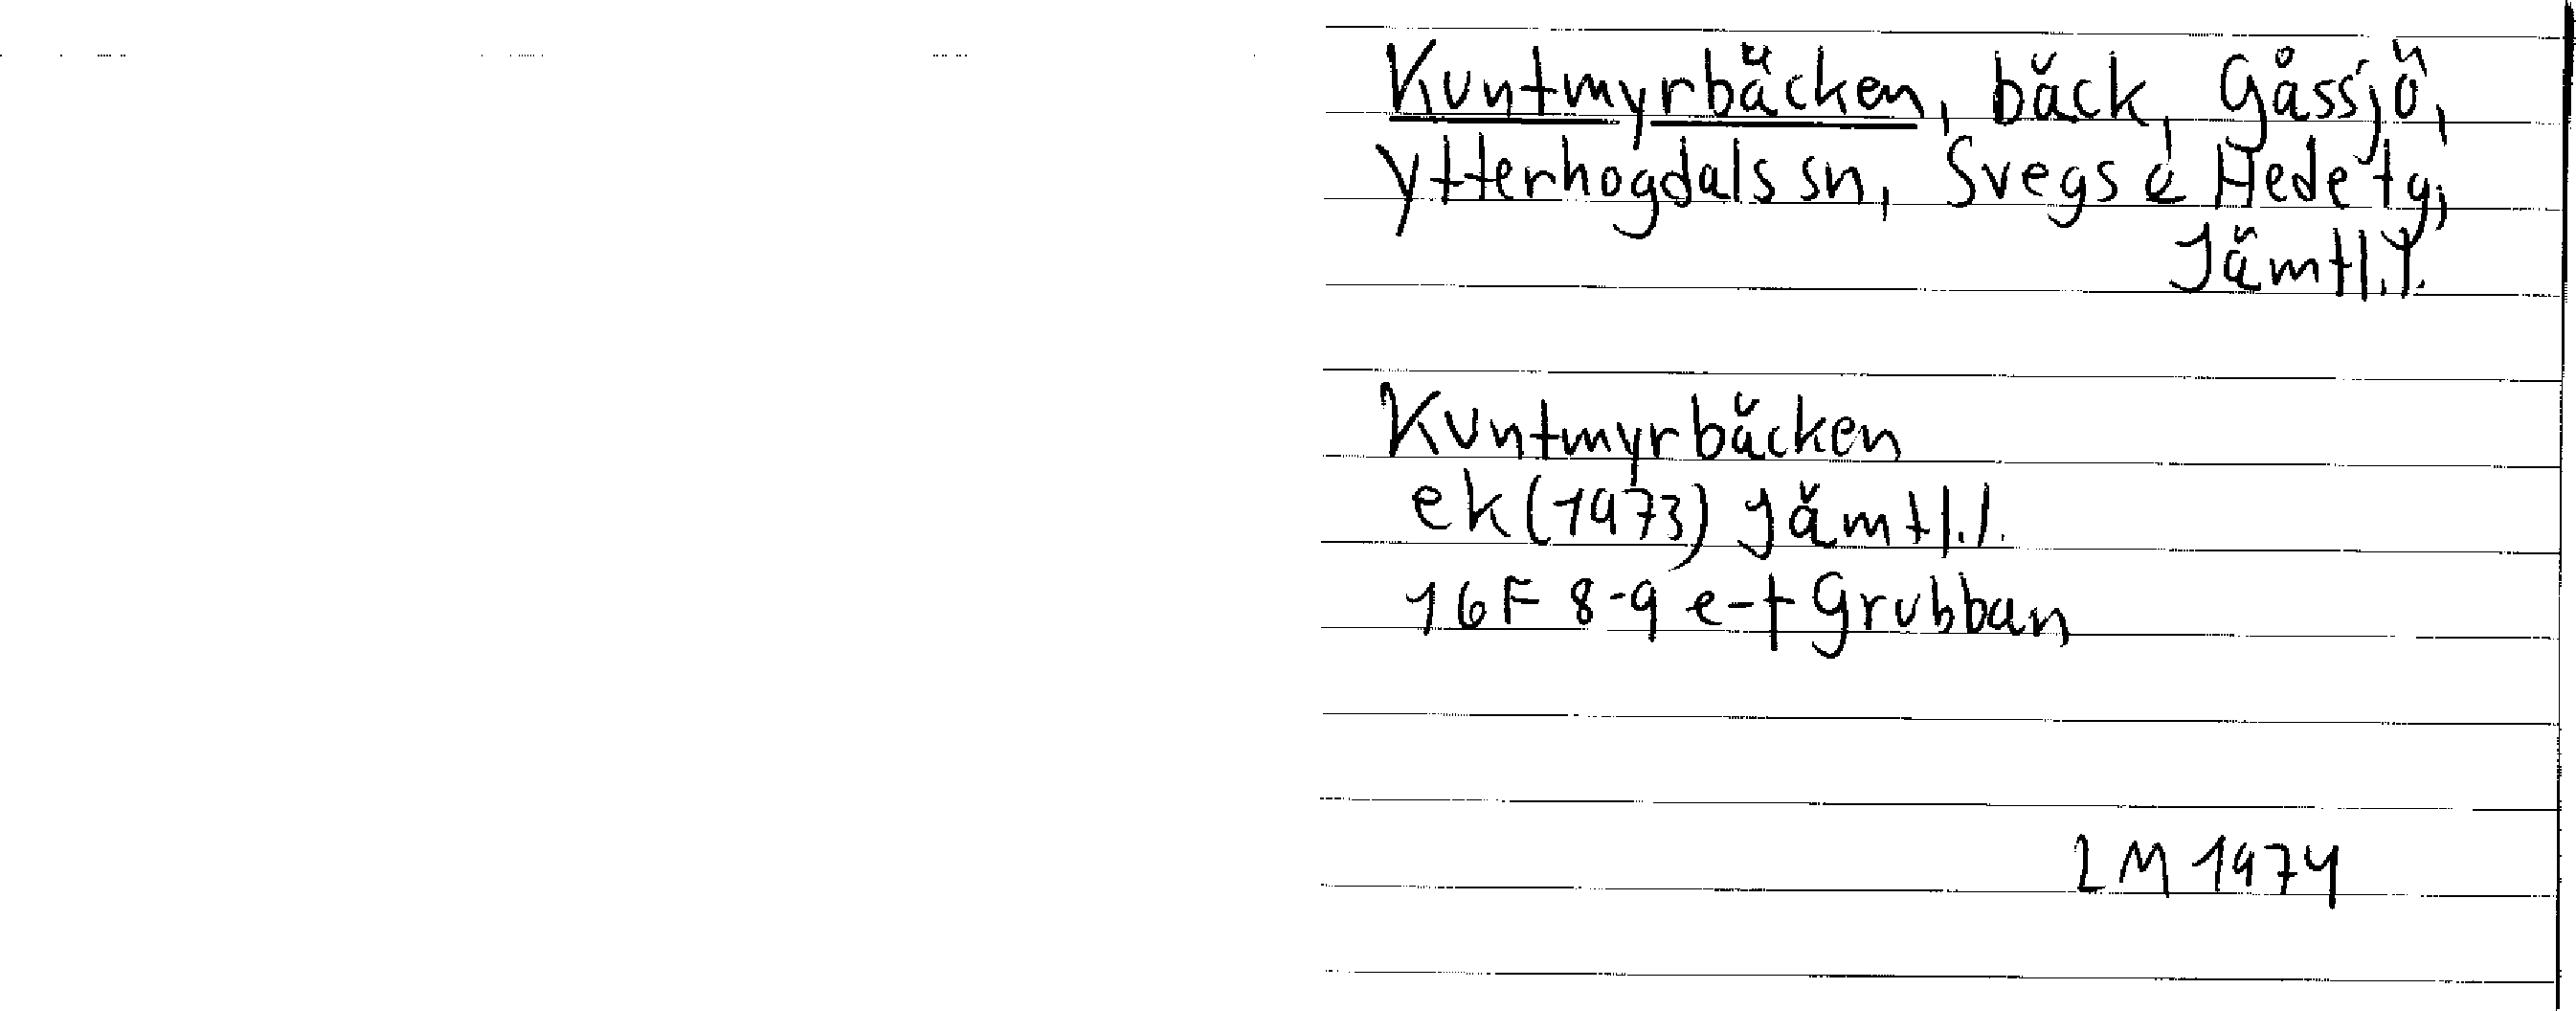 Kuntmyrbäcken, bäck, Gåssjö,
Ytterhogdals sn, Svegs o Hede tg,
Jämtl.l.
Kuntmyrbäcken
ek (1973) Jämtl.l.
16F 8-9 e-f Grubban
LM 1974